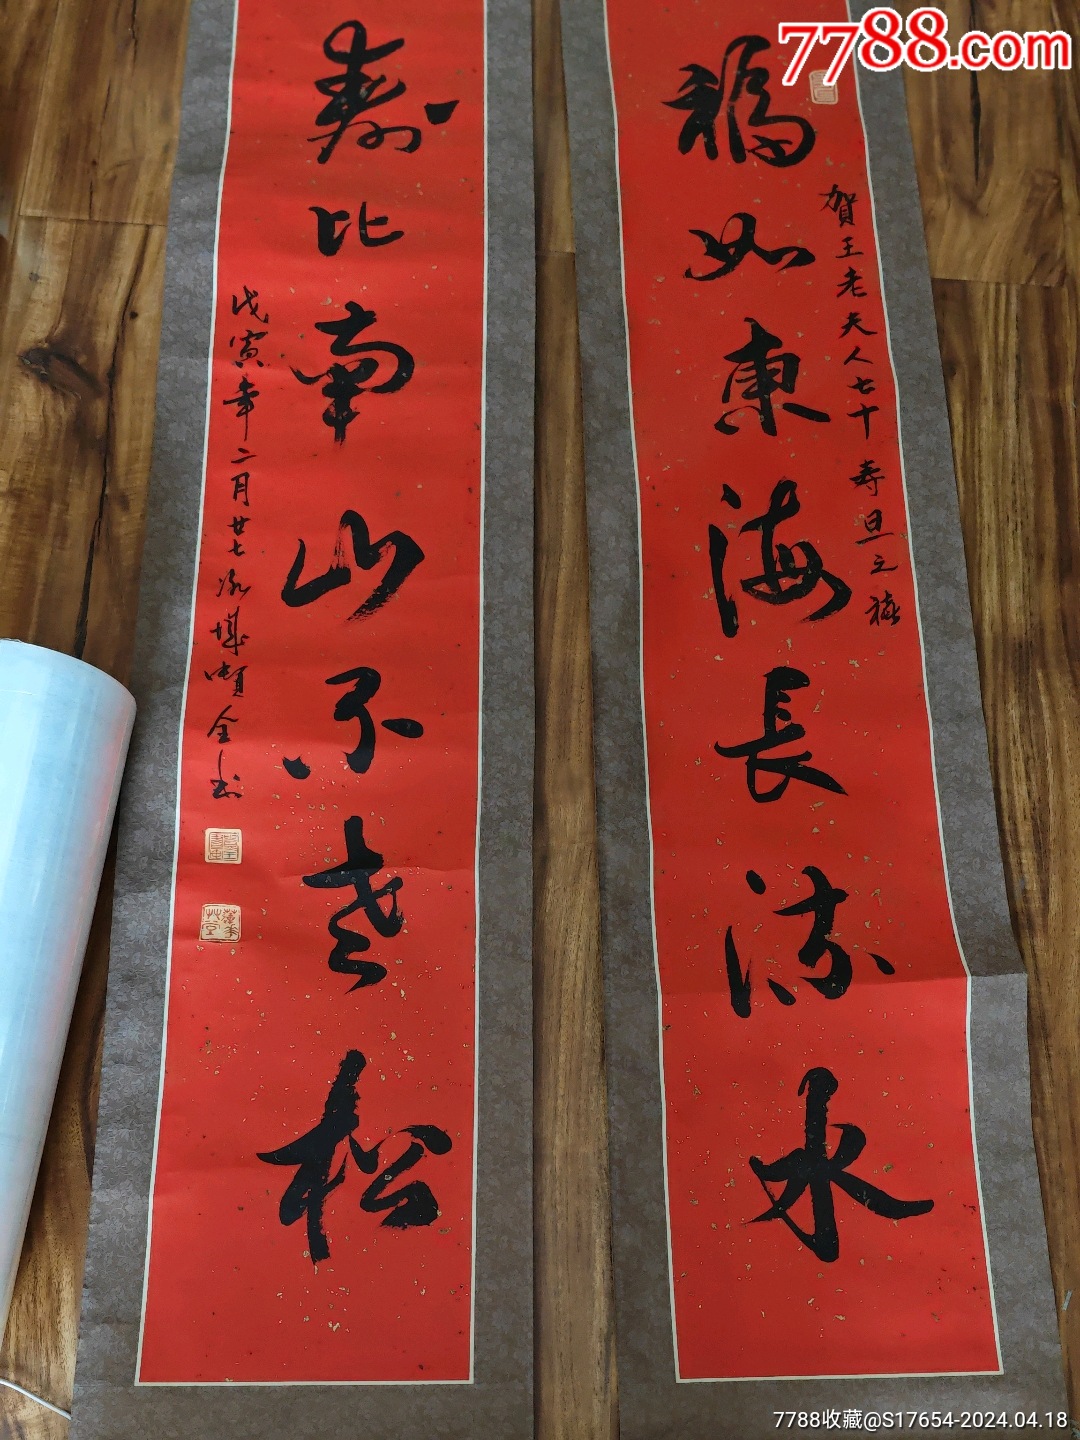 7788.com
福如東海長流水
賀王老夫人七十壽旦之禧
壽比南山不老松
戊寅年二月廿七
全書
7788收藏@S17654-2024.04.18